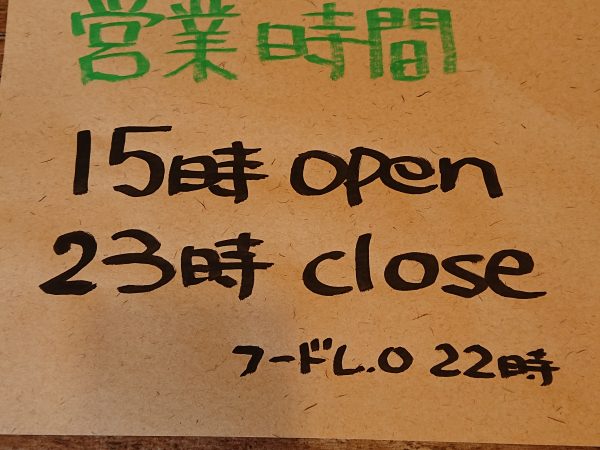 営業時間
15時 open
23時 close
フードL.O 22時